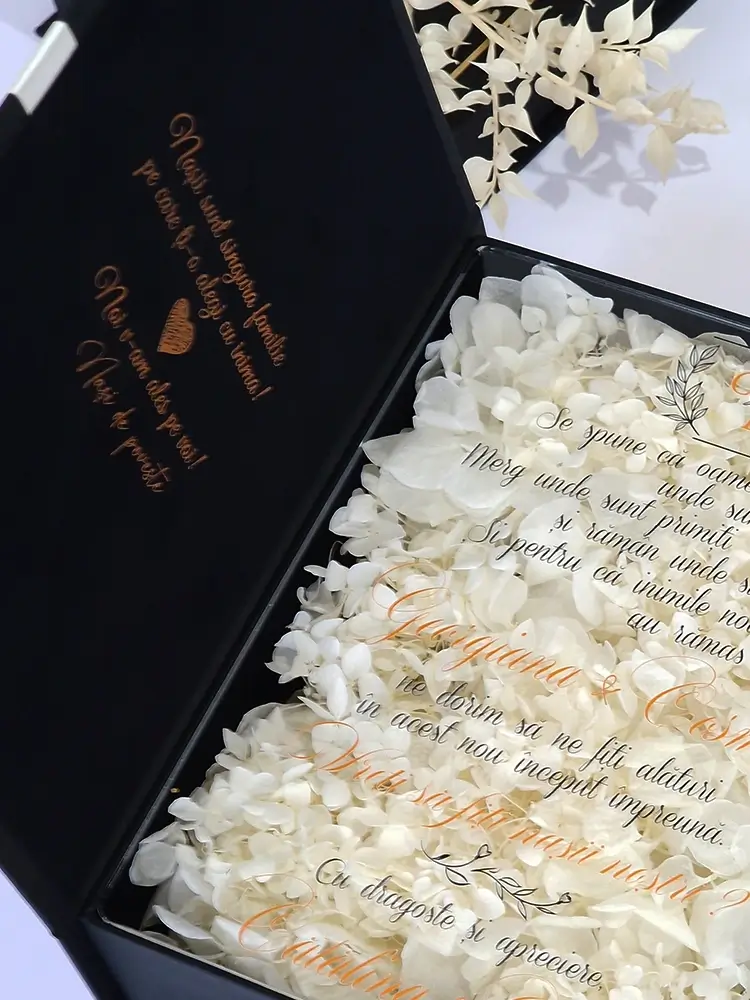 Nașii sunt singura familie
pe care ți-o alegi cu inima!
Noi v-am ales pe voi!
Nași de poveste
Se spune că oame
unde su
Merg unde sunt primiți
și rămân unde s
Și pentru că inimile no
au rămas
Georgiana & Cosm
ne dorim să ne fiți alături
în acest nou început împreună.
Vreți să fiți nașii noștri?
Cu dragoste și apreciere,
Cătălina